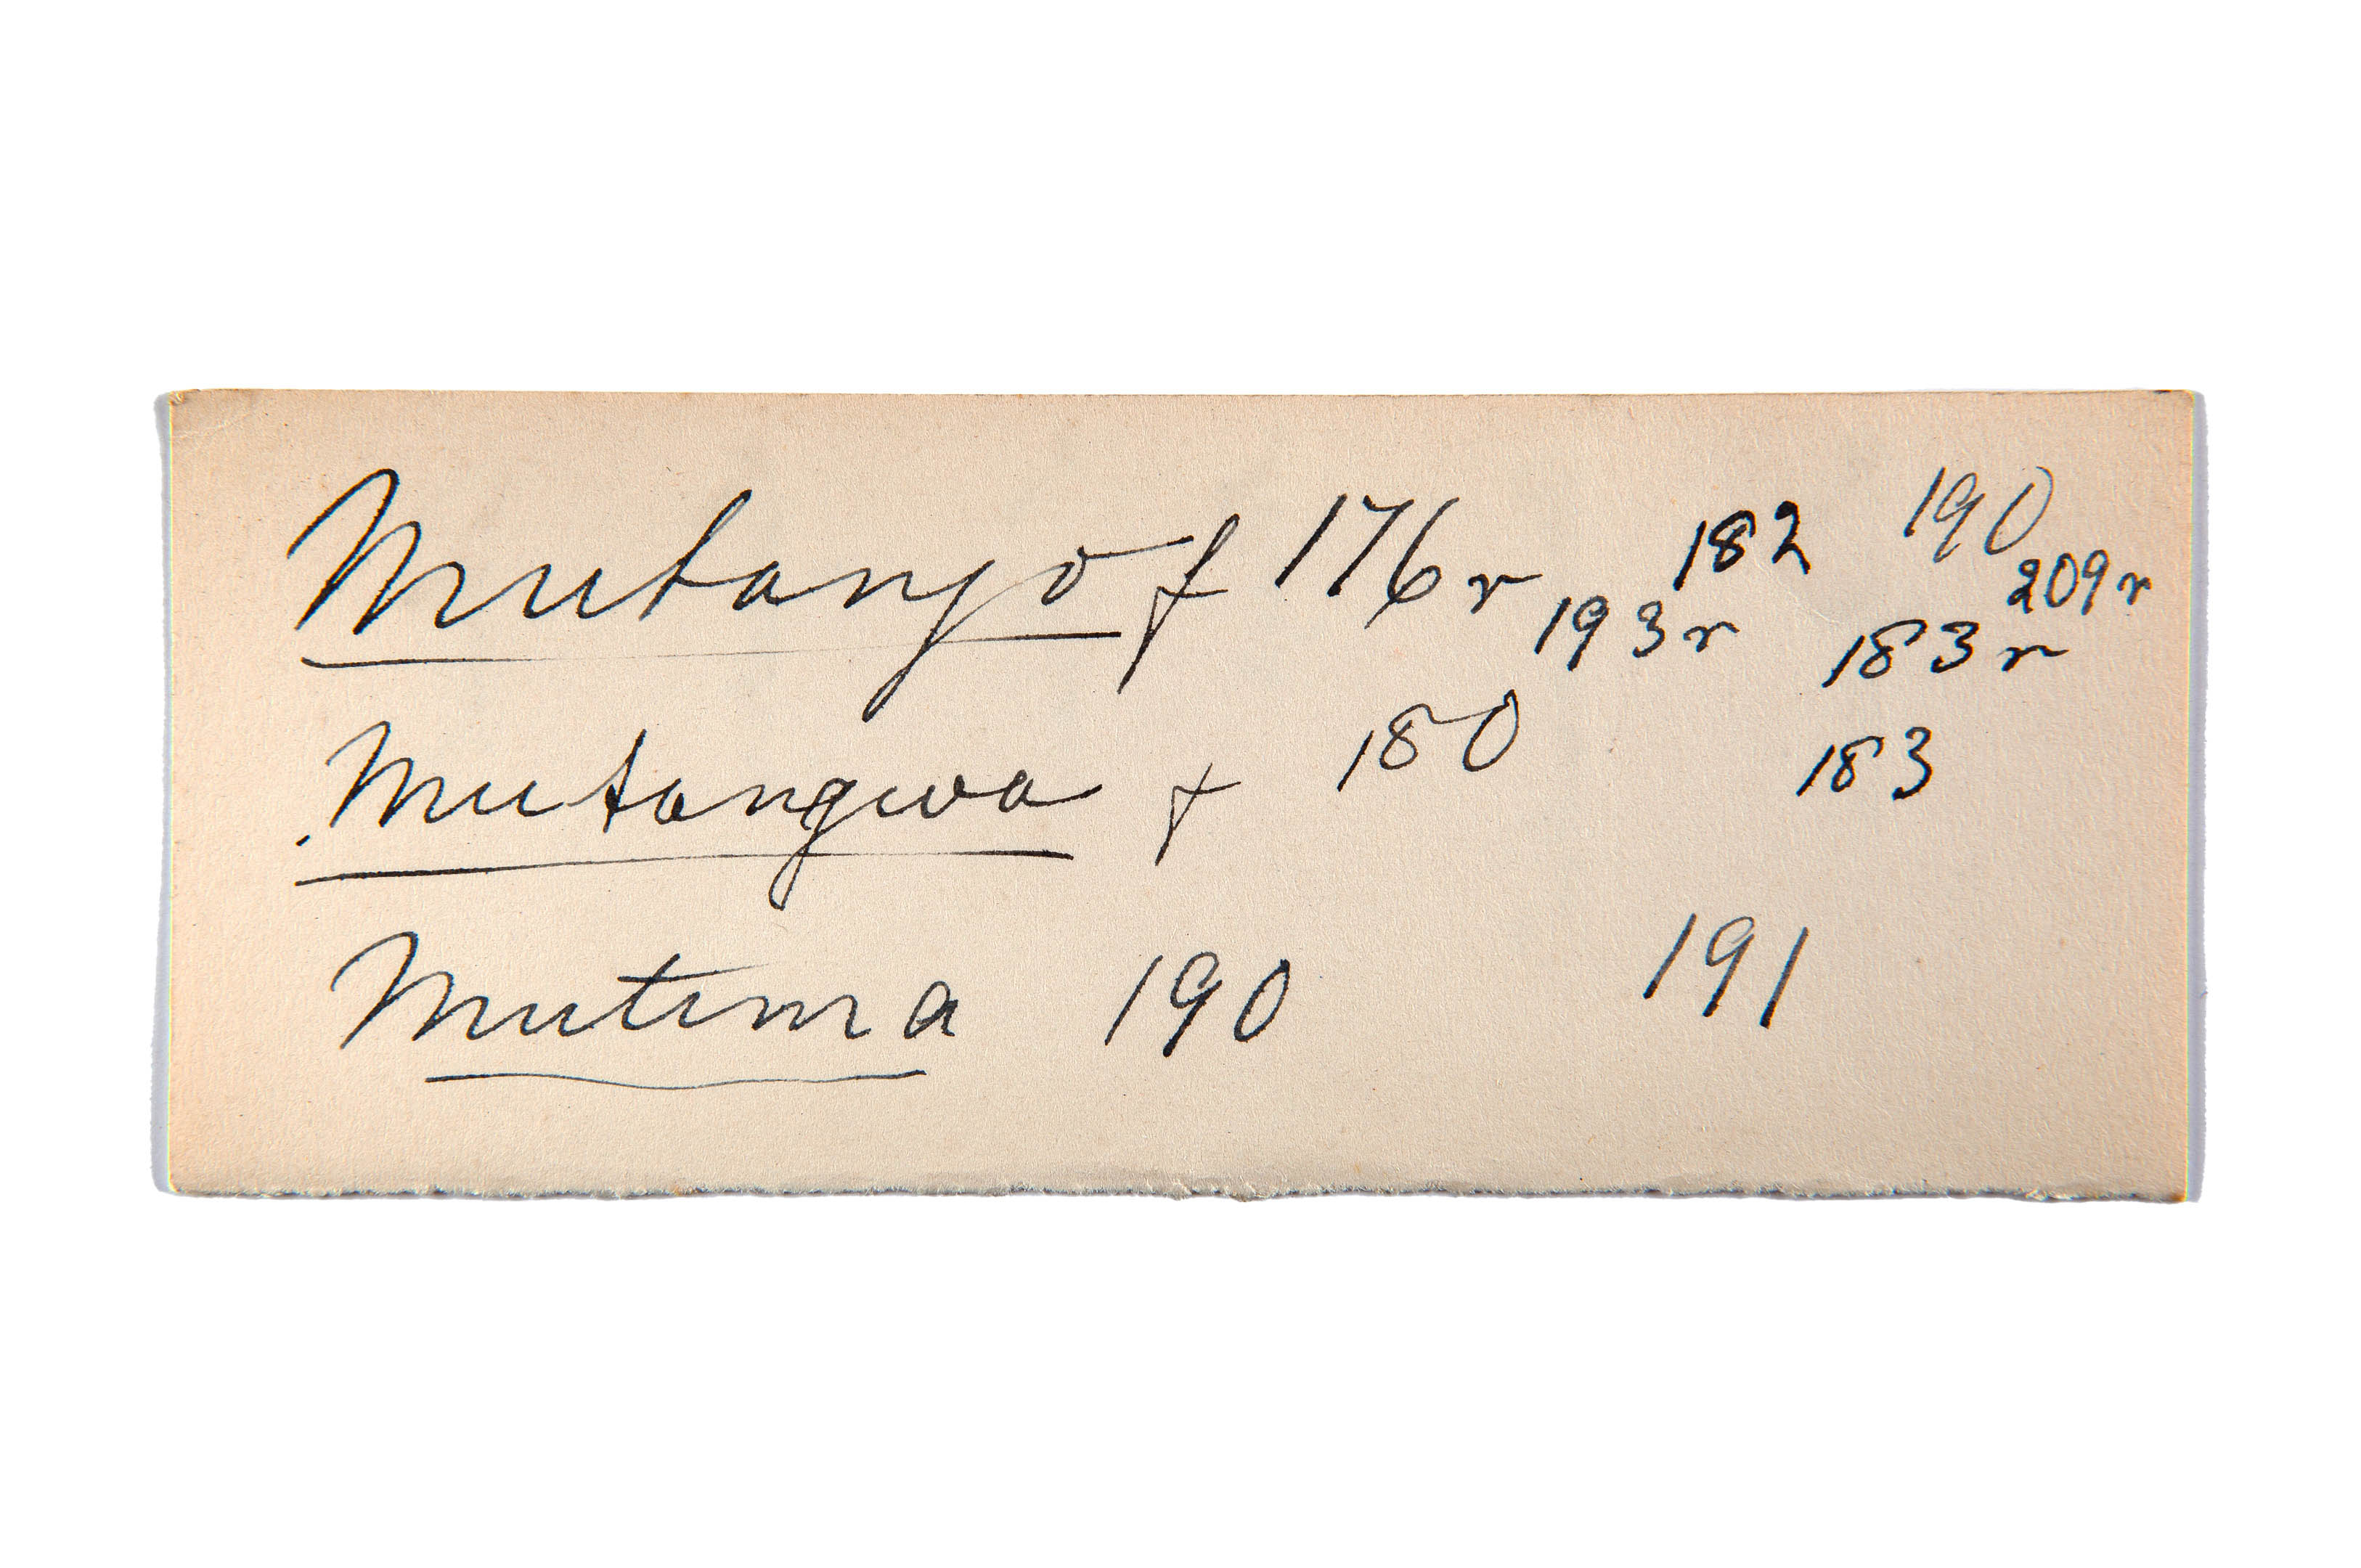 Mutango f 176r 182 190
193r 183r 209r
Mutangwa f 180 183
Mutima 190 191